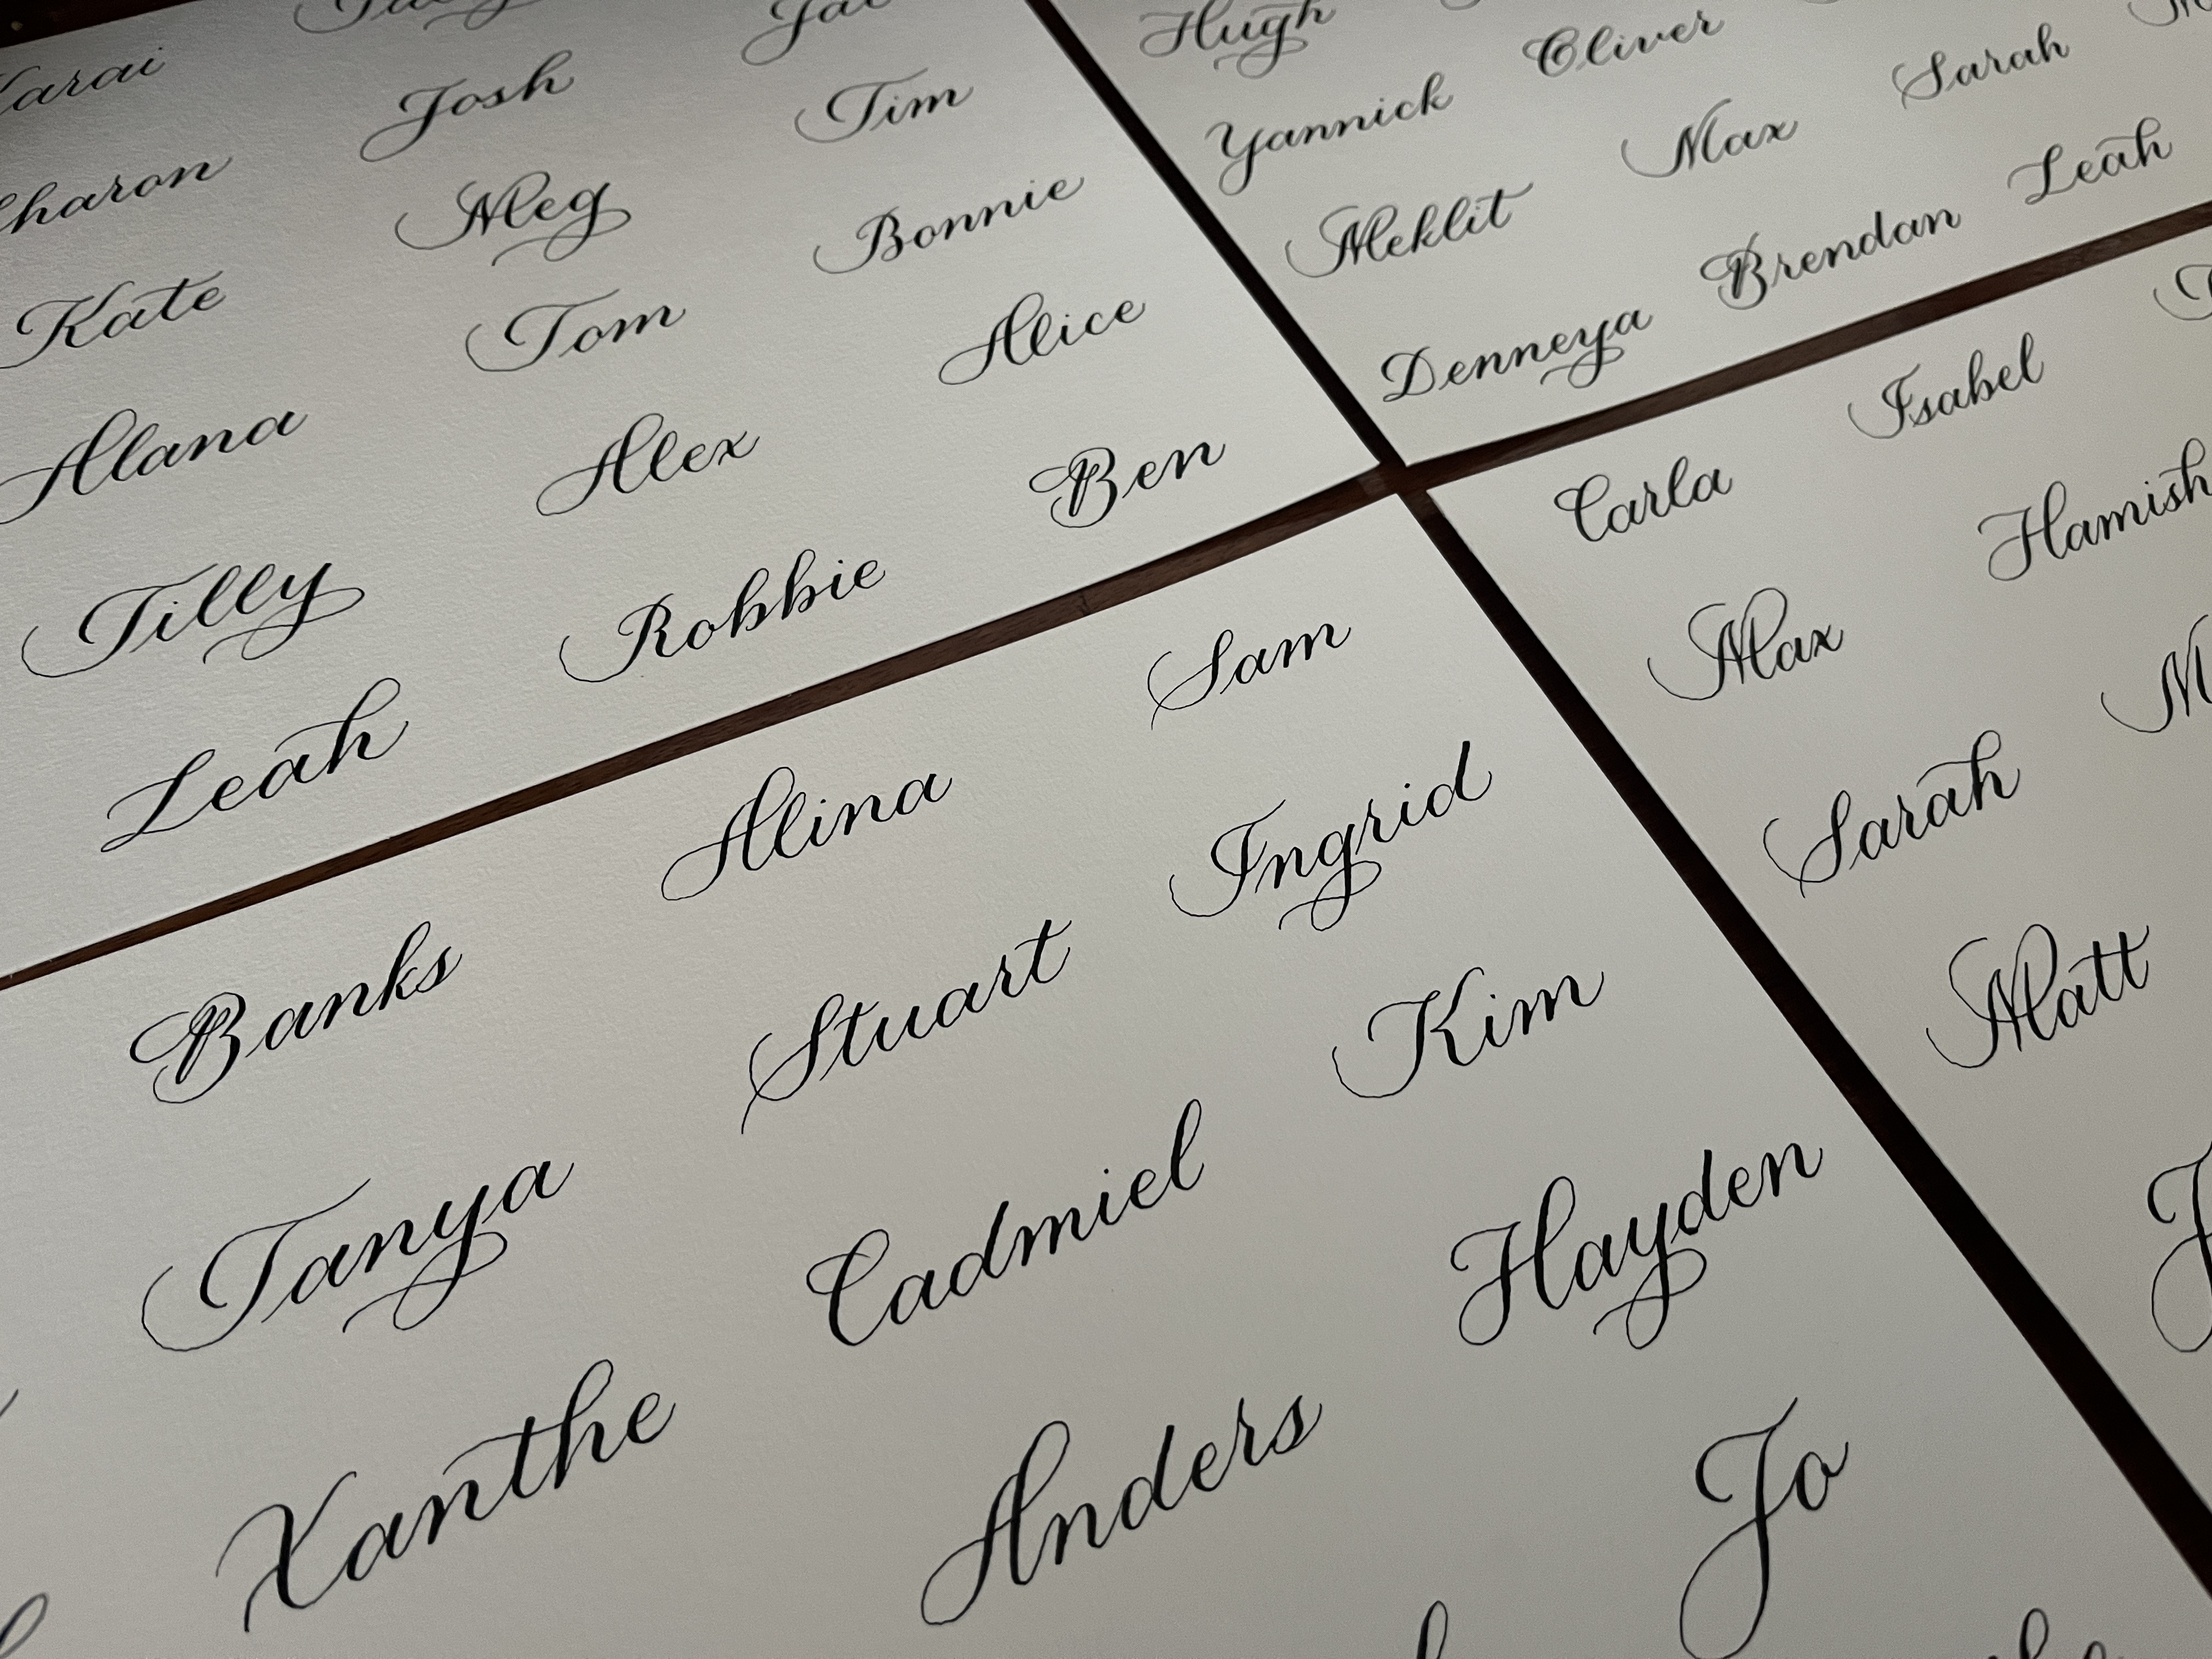 Josh
Tim
Meg
Bonnie
Kate
Tom
Alice
Alana
Alex
Ben
Tilly
Robbie
Leah
Hugh
Oliver
Sarah
Yannick
Max
Leah
Meklit
Brendan
Denneya
Sam
Alina
Ingrid
Banks
Stuart
Kim
Tanya
Cadmiel
Hayden
Xanthe
Anders
Jo
Isabel
Carla
Hamish
Max
Sarah
Matt